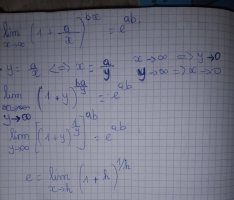 lim x→∞ (1 + a/x)^bx = e^ab
y = a/x <=> x = a/y x→∞ => y→0
y→∞ => x→0
lim y→∞ (1+y)^(ba/y) = e^ab
lim y→∞ [(1+y)^(1/y)]^ab = e^ab
e = lim x→h (1+h)^1/h